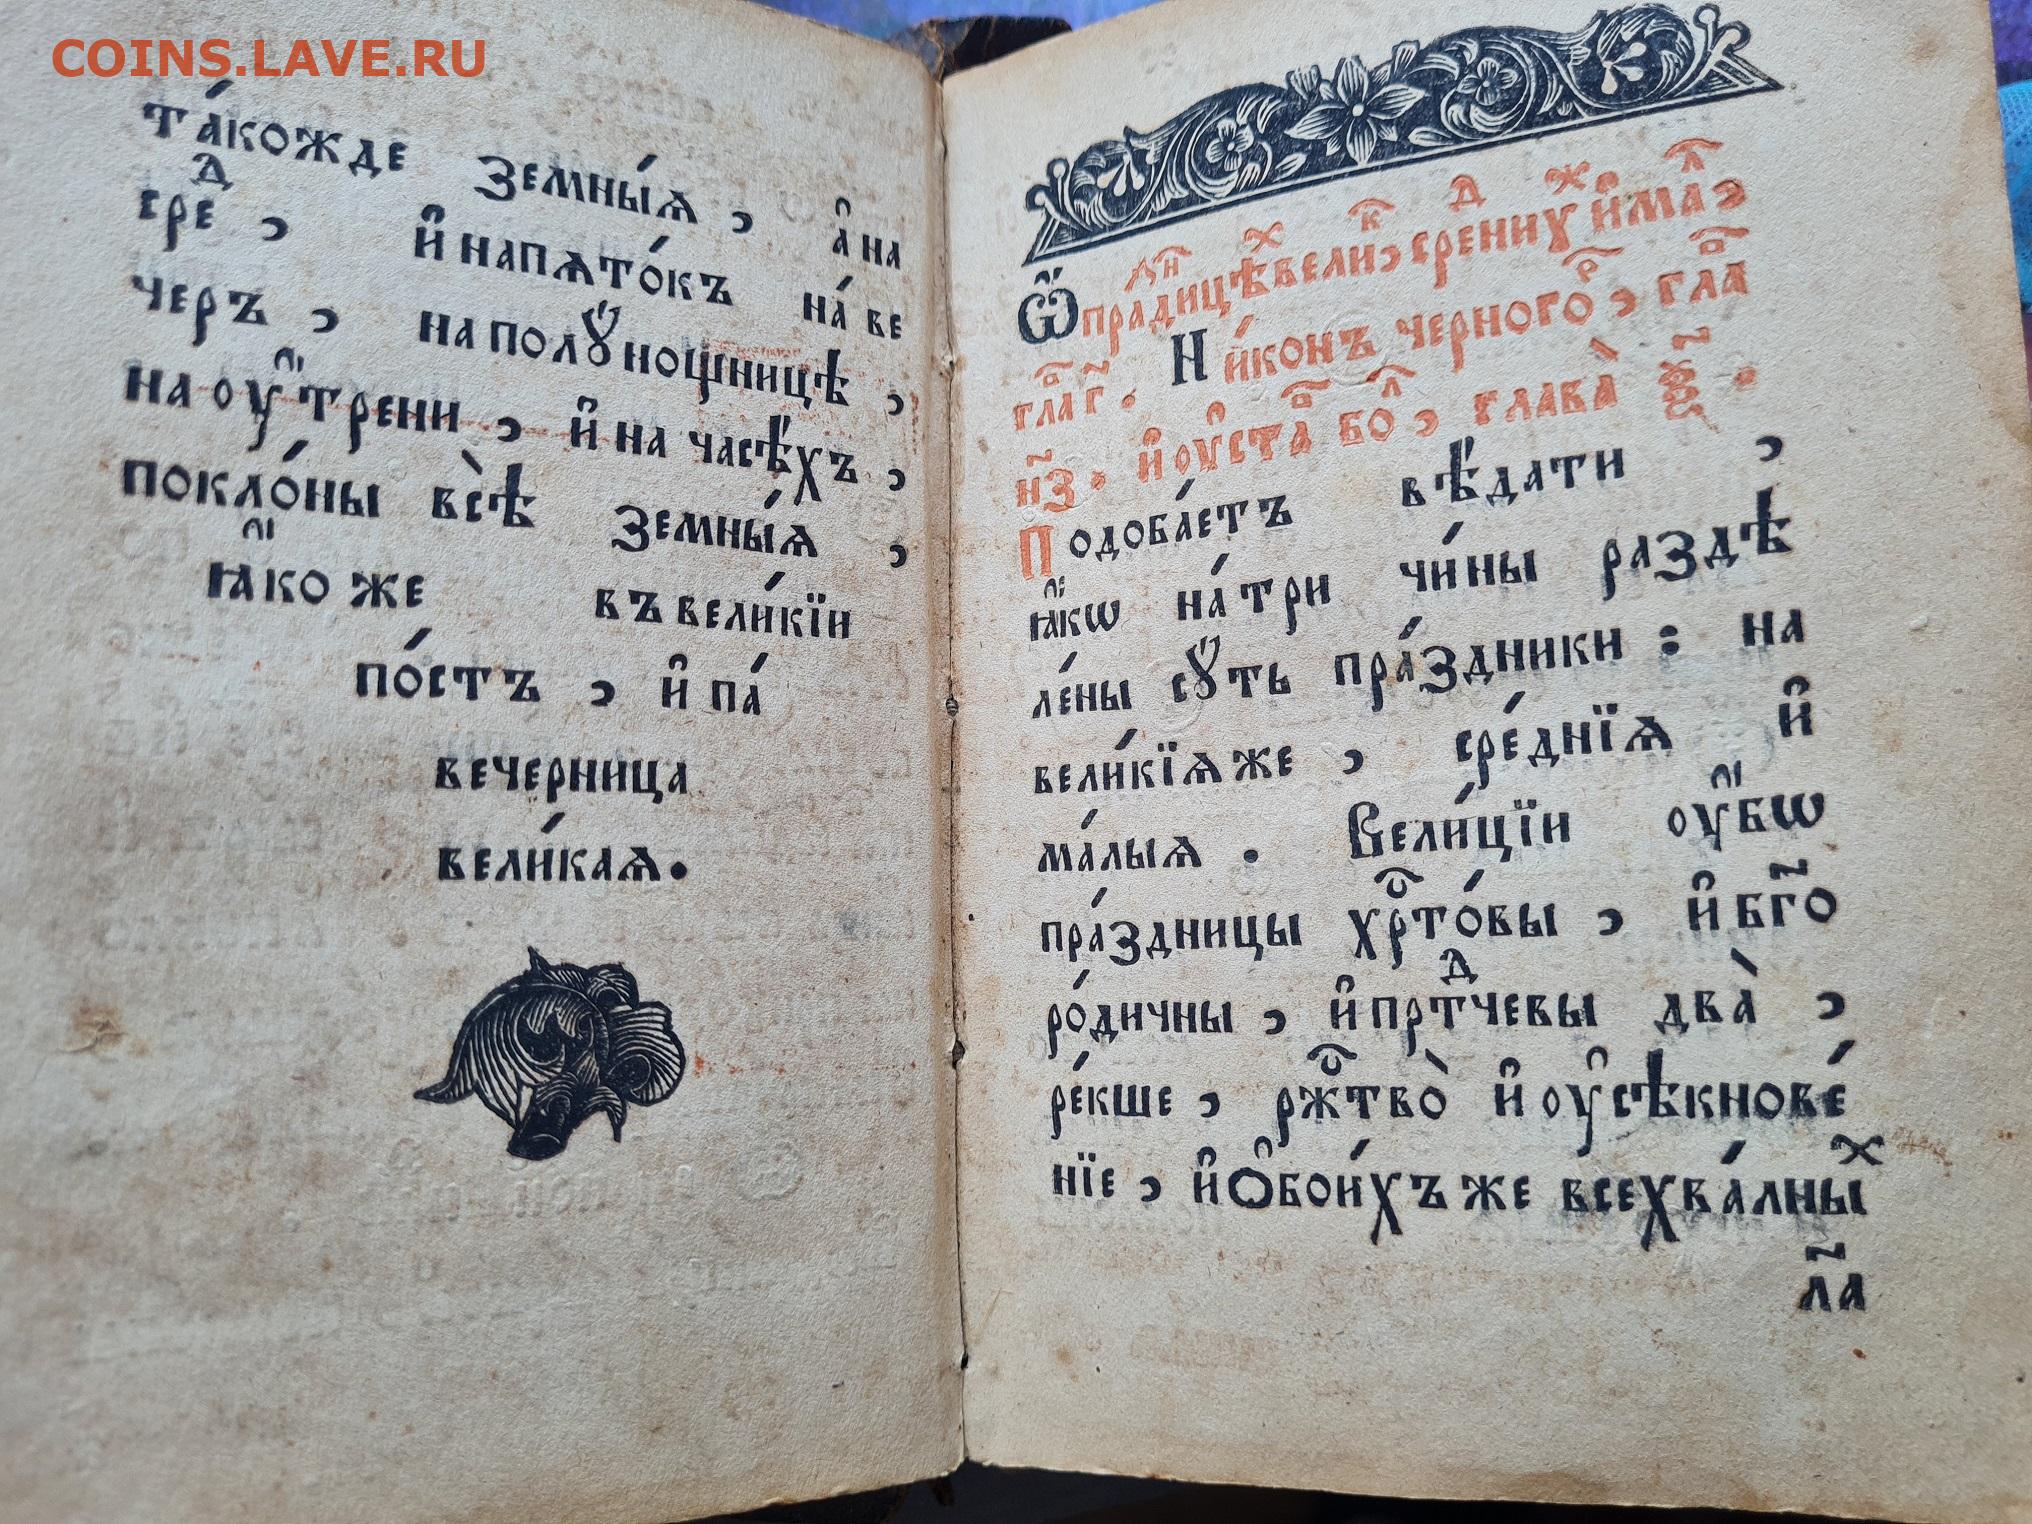 COINS.LAVE.RU
та́кожде земны́ѧ , а҆ на
среⷣ , и҆ напѧто́къ на́ ве
черъ , на полꙋ́нощницѣ ,
на оу҆́трени , и҆ на часѣ́хъ ,
покло́ны всѣ̀ земны́ѧ ,
ꙗ҆́коже въ вели́кїи
по́стъ , и҆ па́
вечерница
вели́каѧ.
Ѿ праⷣницѣⷯ велиⷦ , среⷣниⷯ и҆ маⷧ ,
Ни́конъ черного́ , глаⷡ
глаⷡ г҃. 
н҃з. и҆ оу҆стаⷡ боⷧ , глава̀
Подоба́етъ вѣ́дати ,
ꙗ҆́кѡ на́ три чи́ны раздѣ
ле́ны сꙋ́ть пра́здники : на
вели́кїѧ же , сре́днїѧ и҆
ма́лыѧ . Вели́цїи оу҆́бѡ
пра́здницы хрⷭ҇то́вы , и҆ бг҃о
ро́дичны , и҆ прⷣтчевы два̀ ,
ре́кше , ржⷭ҇тво̀ и҆ оу҆сѣкнове́
нїе , и҆ ѻ҆бои́хъ же всехва́лныⷯ
л҃а